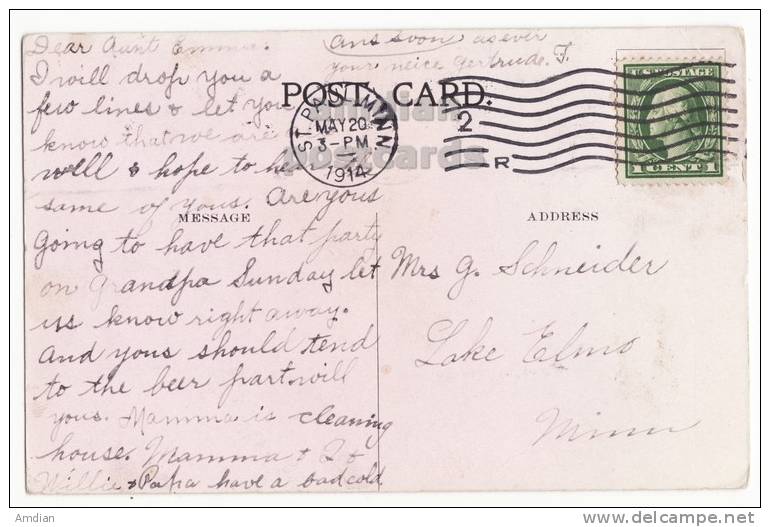 Dear Aunt Emma.
I will drop you a
few lines & let you
know that we are
well & hope to hear
same of yous. Are yous
going to have that party
on Grandpa Sunday let
us know right away.
and yous should tend
to the beer part will
yous. Mamma is cleaning
house. Mamma + I +
Willie & Papa have a bad cold
Ans soon as ever
your neice Gertrude. F.
POST CARD.
ST. PAUL, MINN
MAY 20
3-PM
1914
2
R
U.S. POSTAGE
1 CENT 1
MESSAGE
ADDRESS
Mrs G. Schneider
Lake Elmo
Minn
postcards
Amdian
delcampe.net